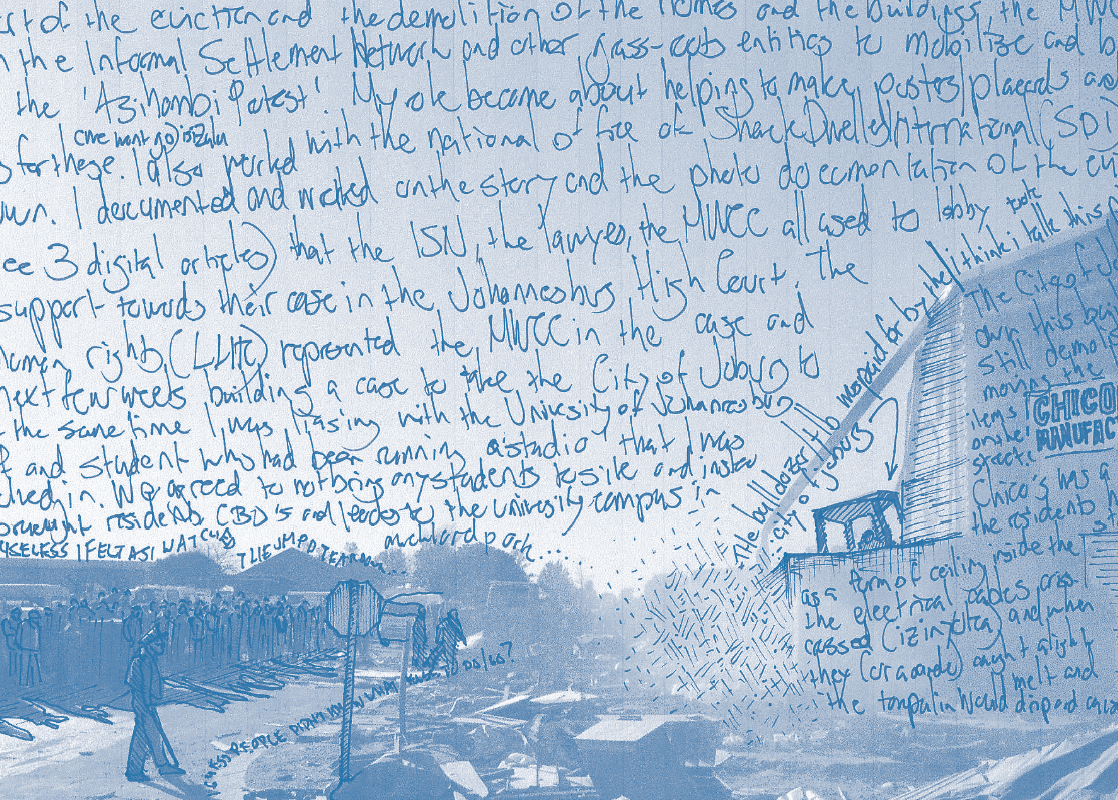 of the eviction and the demolition of the homes and the buildings, the MW
the Informal Settlement Network and other grass-roots entities to mobilize and
the 'Azihambi Protest'. My role became about helping to make posters/placards
(we wont go) isizulu
for these. I also worked with the national office of Shack Dwellers International (SDI)
own. I documented and worked on the story and the photo documentation of the
ee 3 digital articles) that the ISN, the lawyers, the MWCC all used to lobby
support towards their case in the Johannesburg High Court. The
human rights (LHR) represented the MWCC in the case and
next few weeks building a case to take the City of Joburg to
the same time I was liasing with the University of Johannesburg
and student who had been running a studio that I was
in. We agreed to not bring any students to site and instead
brought residents CBO's and leaders to the university campus in
auckland park...
USELESS I FELT AS I WATCHED
THE JMPD TEAR
The bulldozer that was paid for by the
city of joburg
I think I took this
The City of Jo
own this bu
still demoli
moving the
items
onsite!
CHICO
MANUFAC
Chico's has a
the residents
as a form of ceiling inside the
the electrical cables criss-
crossed (izinyoka) and when
they (or a candle) caught alight
melt and
the tarpaulin would drip and
GUESS PEOPLE DIDNT KNOW WHAT
DO/GO?